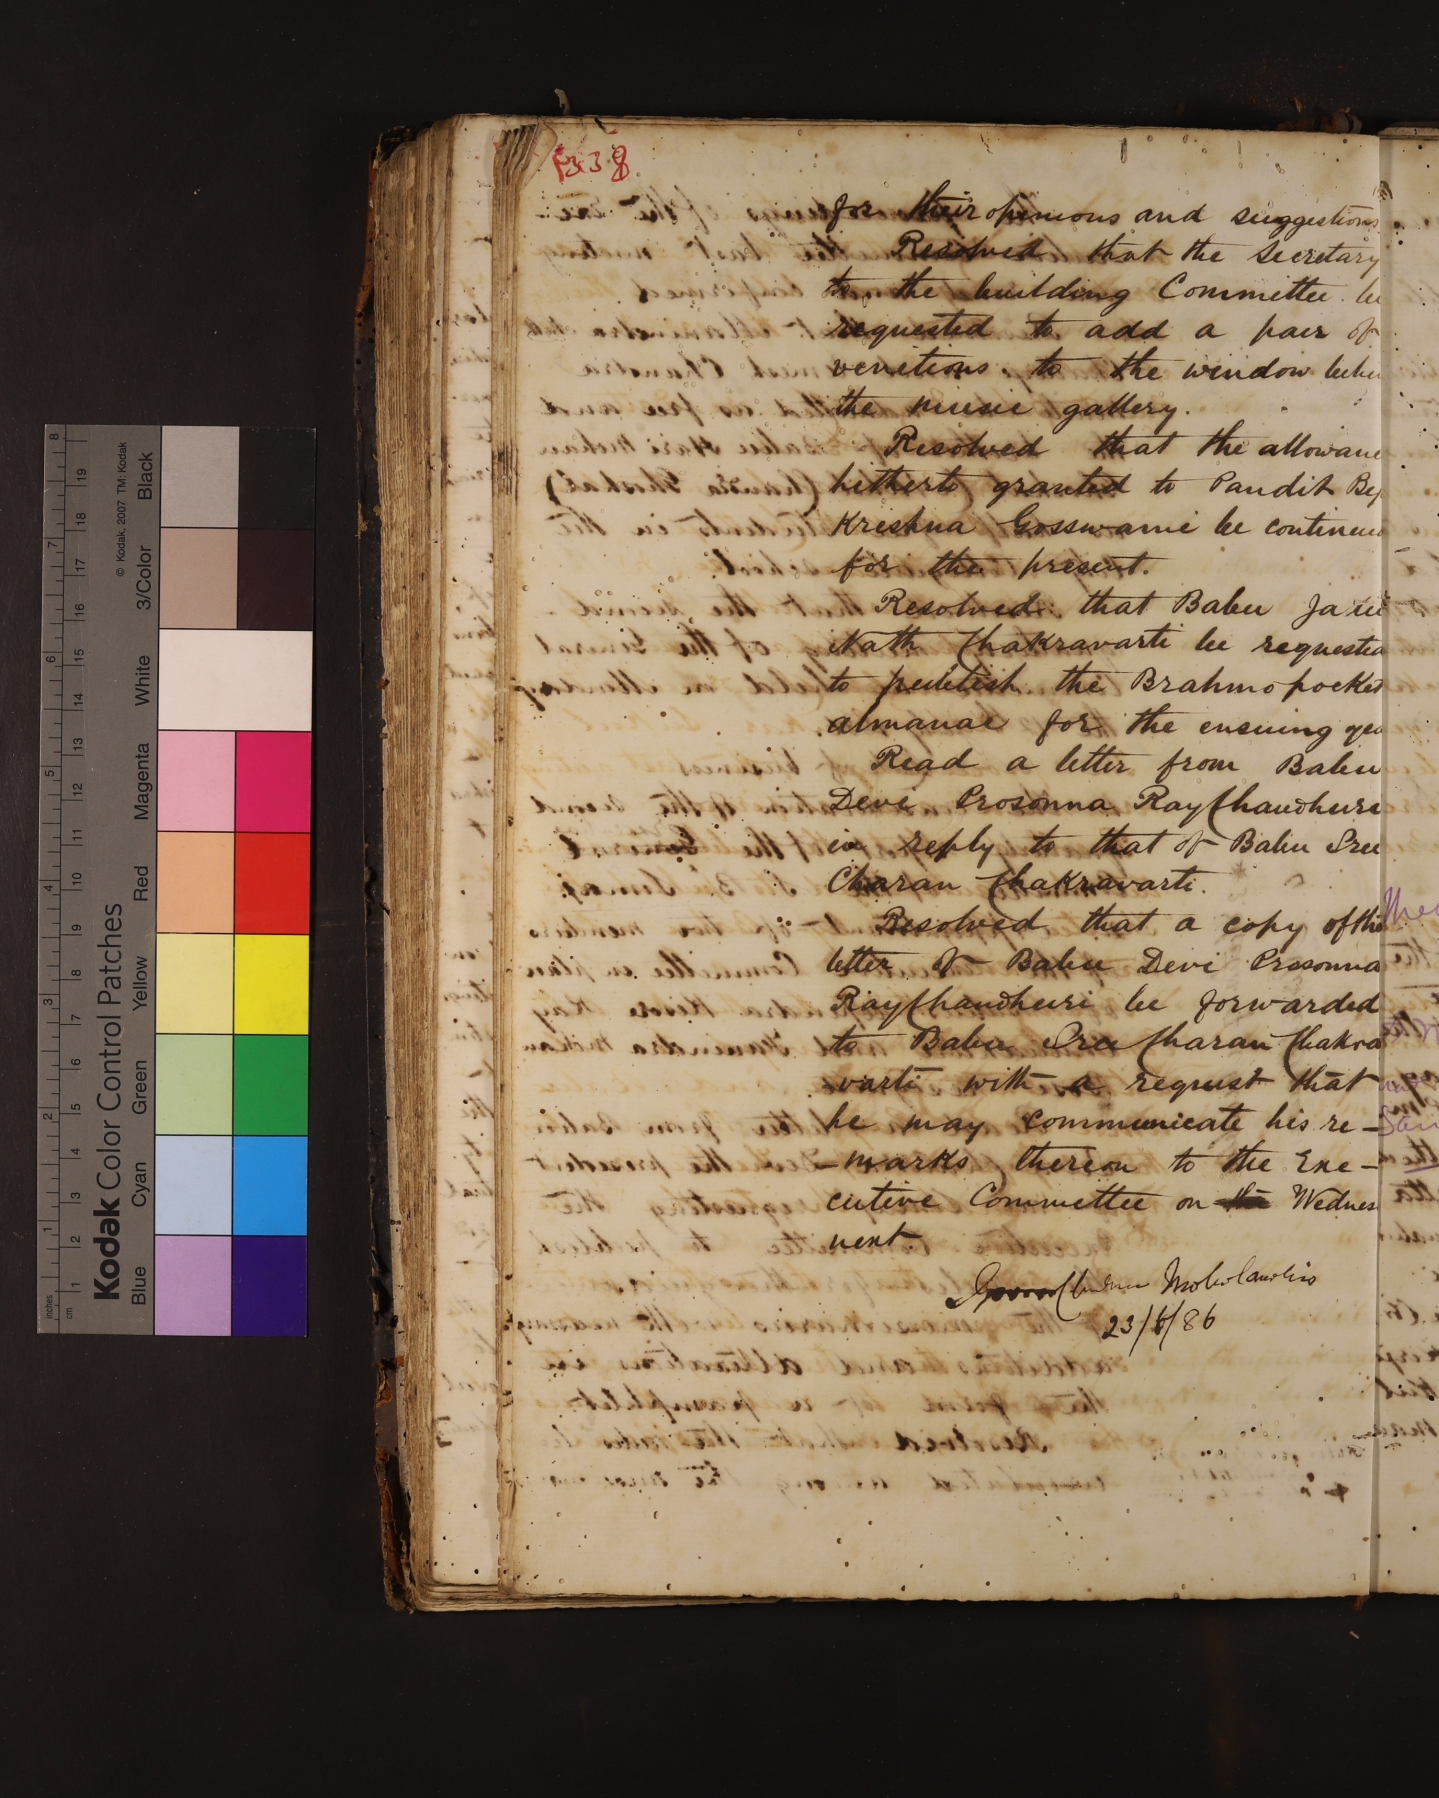 338
for their opinions and suggestions
Resolved that the Secretary
to the building Committee be
requested to add a pair of
venitions to the window
the music gallery.
Resolved that the allowanc
hitherto granted to Pandit Bej
Krishna Gosswami be continued
for the present.
Resolved that Babu
Nath Chakravarti be requested
to publish the Brahmo pocket
almanac for the ensuing yea
Read a letter from Babu
Devi Prosonna RayChaudhuri
in reply to that of Babu Sree
Charan Chakravarti.
Resolved that a copy of the
letter of Babu Devi Prosonna
RayChaudhuri be forwarded
to Babu Sree Charan Chakra
varti with a request that
he may communicate his re-
-marks thereon to the Exe-
cutive Committee on the Wednes
next
23/6/86
Kodak Color Control Patches
© Kodak, 2007 TM: Kodak
Blue Cyan Green Yellow Red Magenta White 3/Color Black
inches 1 2 3 4 5 6 7 8
cm 1 2 3 4 5 6 7 8 9 10 11 12 13 14 15 16 17 18 19